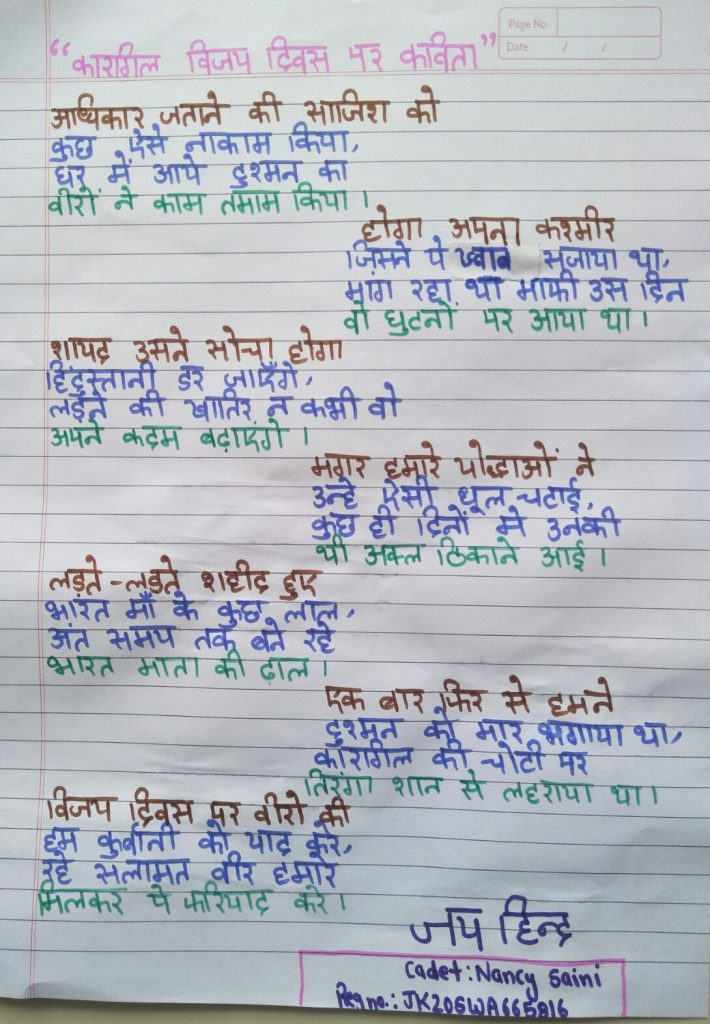 Page No.
Date / /
“कारगिल विजय दिवस पर कविता”
अधिकार जताने की साजिश को
कुछ ऐसे नाकाम किया,
घर में आये दुश्मन का
वीरों ने काम तमाम किया।
होगा अपना कश्मीर
जिसने ये ख्वाब सजाया था,
मांग रहा था माफी उस दिन
वो घुटनों पर आया था।
शायद उसने सोचा होगा
हिंदुस्तानी डर जाएँगे,
लड़ने की खातिर न कभी वो
अपने कदम बढ़ाएंगे।
मगर हमारे योद्धाओं ने
उन्हे ऐसी धूल चटाई,
कुछ ही दिनों मे उनकी
थी अक्ल ठिकाने आई।
लड़ते-लडते शहीद हुए
भारत माँ के कुछ लाल,
अंत समय तक बने रहे
भारत माता की ढ़ाल।
एक बार फिर से हमने
दुश्मन को मार भगाया था,
कारगिल की चोटी पर
तिरंगा शान से लहराया था।
विजय दिवस पर वीरो की
हम कुर्बानी को याद करे,
रहे सलामत वीर हमारे
मिलकर ये फरियाद करे।
जय हिन्द
Cadet: Nancy Saini
Reg no.: JK20SWA665816